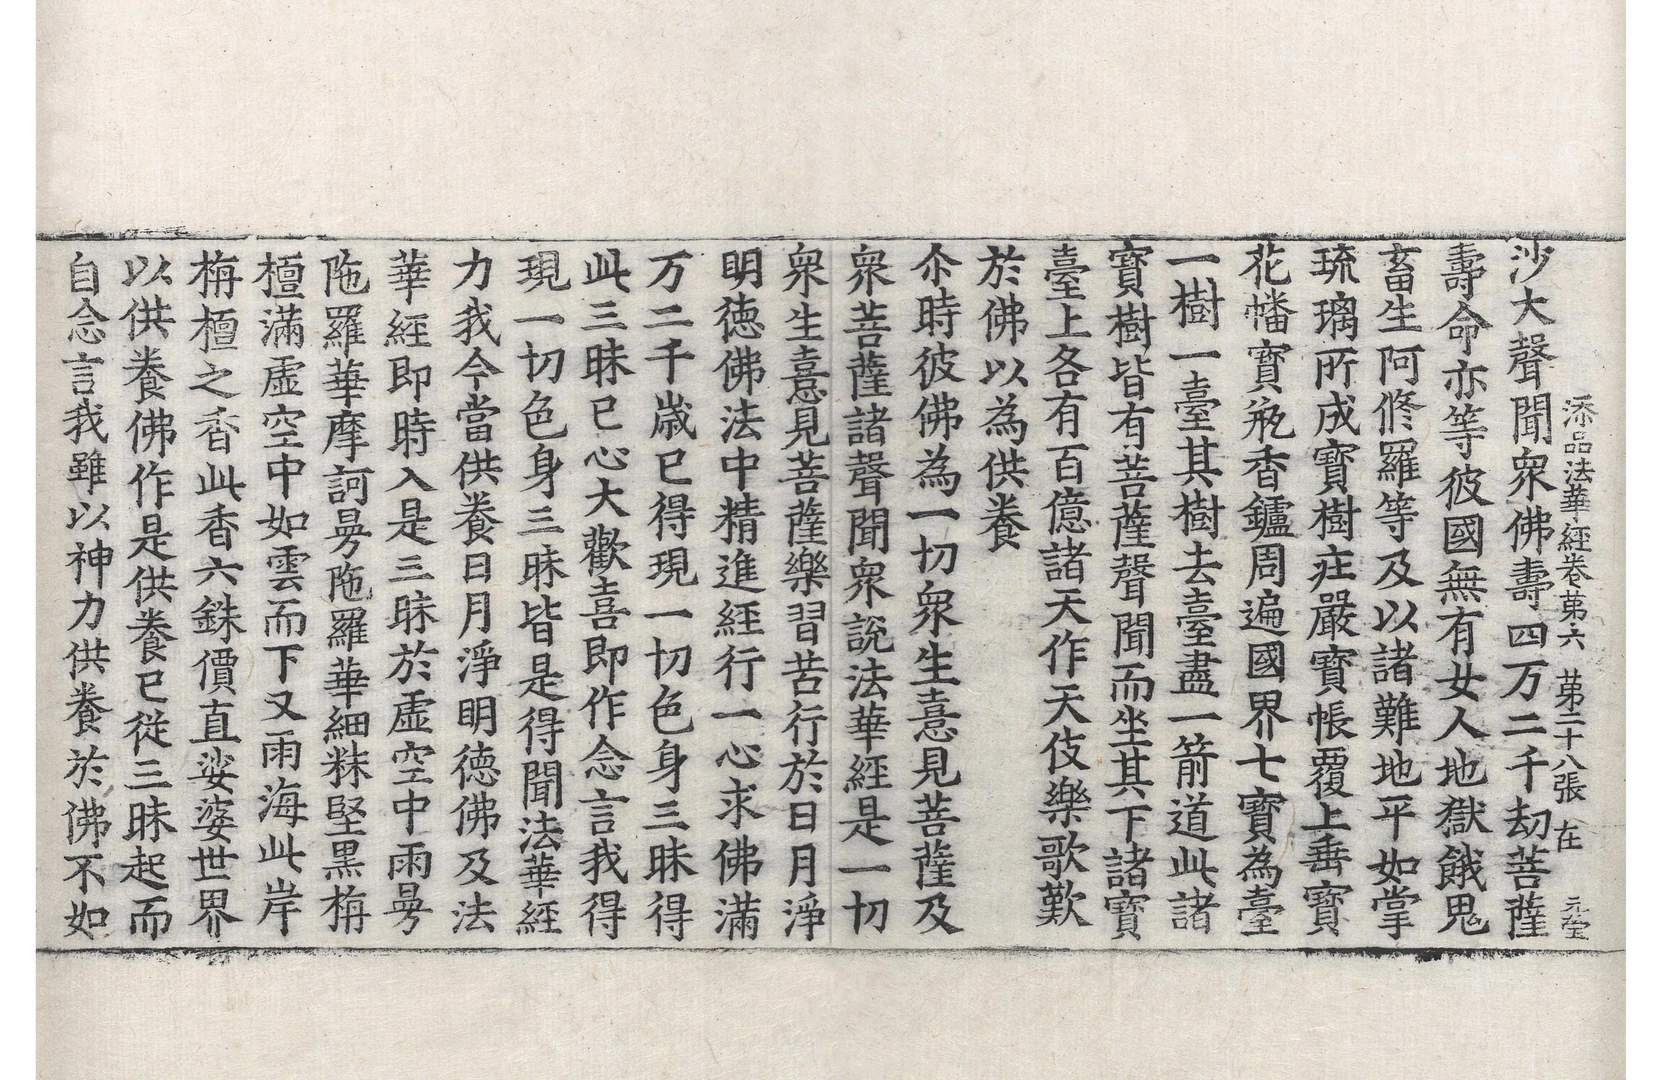 添品法華經卷苐六 苐二十八張 在 元瑩
沙大聲聞衆佛壽四万二千劫菩薩
壽命亦等彼國無有女人地獄餓鬼
畜生阿脩羅等及以諸難地平如掌
琉璃所成寶樹莊嚴寶帳覆上垂寶
花幡寶瓶香鑪周遍國界七寶為臺
一樹一臺其樹去臺盡一箭道此諸
寶樹皆有菩薩聲聞而坐其下諸寶
臺上各有百億諸天作天伎樂歌歎
於佛以為供養
尒時彼佛為一切衆生憙見菩薩及
衆菩薩諸聲聞衆說法華經是一切
衆生憙見菩薩樂習苦行於日月淨
明德佛法中精進經行一心求佛滿
万二千歲已得現一切色身三昧得
此三昧已心大歡喜即作念言我得
現一切色身三昧皆是得聞法華經
力我今當供養日月淨明德佛及法
華經即時入是三昧於虛空中雨曼
陁羅華摩訶曼陁羅華細粖堅黑栴
檀滿虛空中如雲而下又雨海此岸
栴檀之香此香六銖價直娑婆世界
以供養佛作是供養已從三昧起而
自念言我雖以神力供養於佛不如